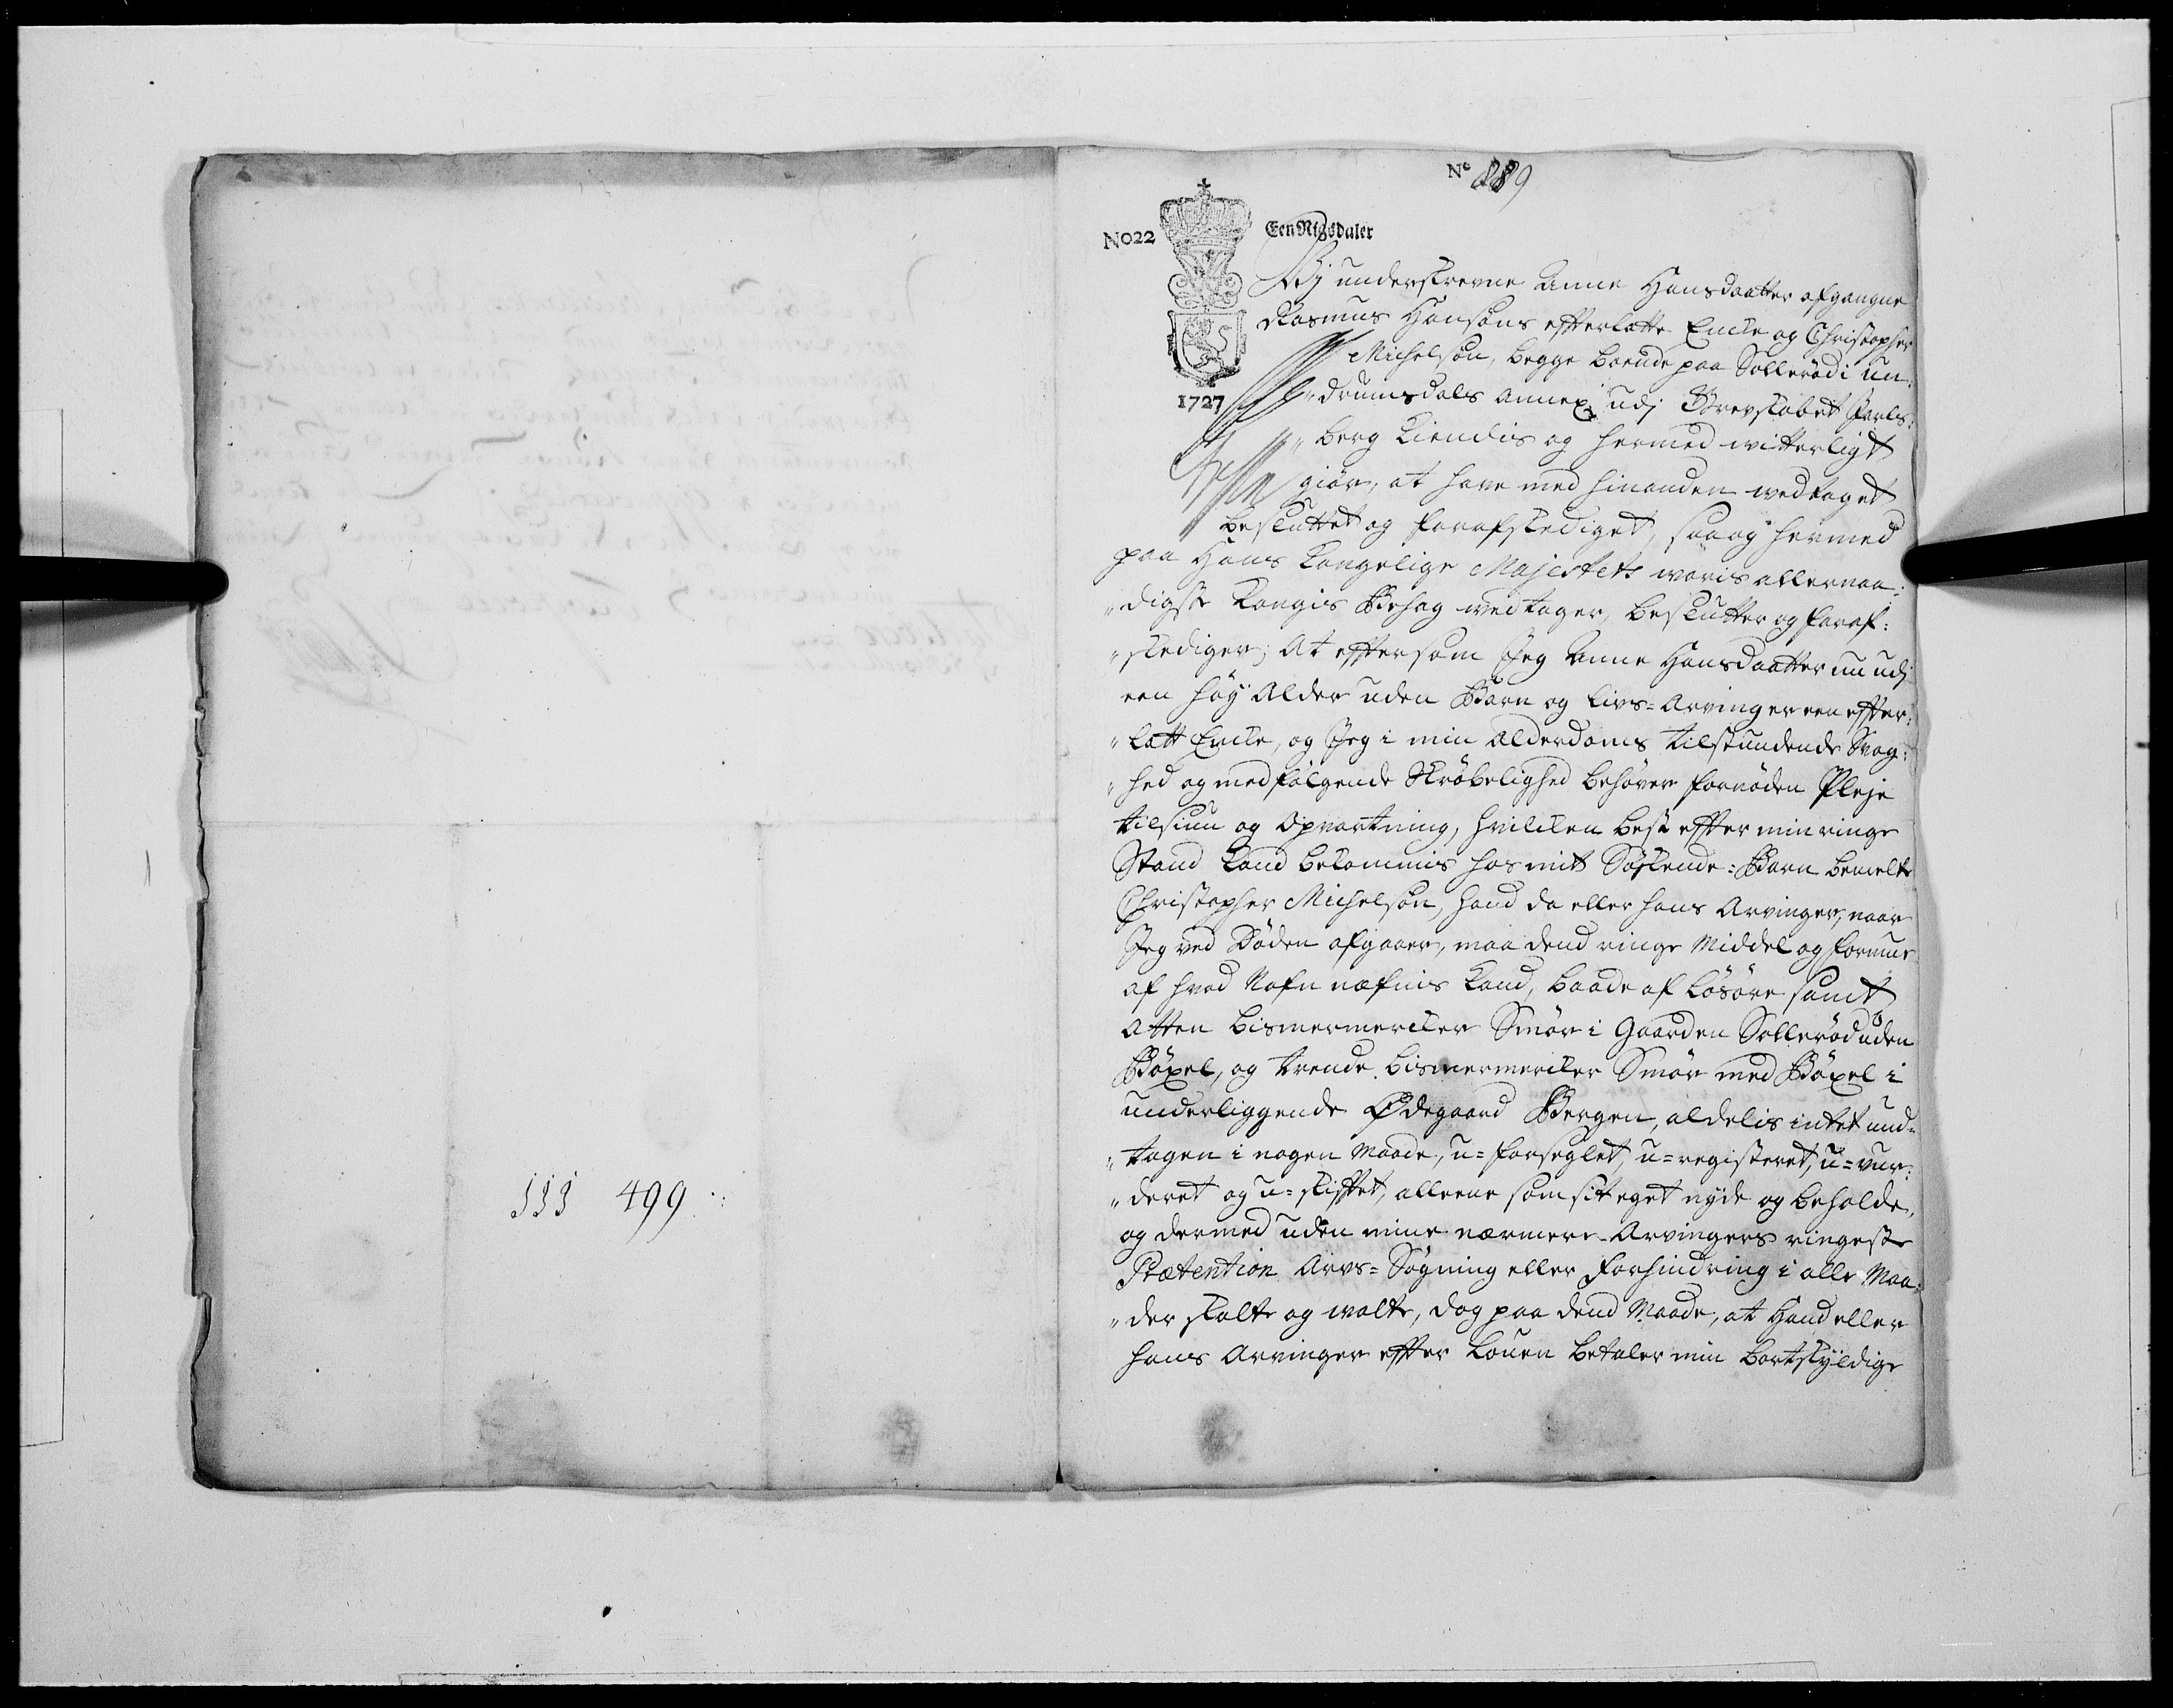 No 889
No22
Een Rigsdaler
1727
Wij underskrevne Anne Hansdaatter afgangne
Rasmus Hansøns efterlatte Encke og Christopher
Michelsøn, begge boende paa Sollerød i Un:
"drumsdals Annex udj Grevskabet Jarls:
"berg Kiendis og hermed witterligt
giør, at have med hinanden wedtaget
besluttet og forafskediget, saa og hermed
paa Hans Kongelige Majestets woris allernaa:
"digste Kongis Behag wedtager, beslutter og foraf:
"skediger; At eftersom Jeg Anne Hansdaatter nu udj
een høy Alder uden Barn og Livs=Arvinger een efter:
"latt Encke, og Jeg i min Alderdoms tilstundende Svag:
"hed og medfølgende Skrøbelighed behøver fornøden Pleje
tilsiun og Opvartning, hvilcken best efter min ringe
Stand kand bekommis hos mit Søskende=Barn bemelte
Christopher Michelsøn, hand da eller hans Arvinger, naar
Jeg ved Døden afgaaer, maa dend ringe Middel og formue
af hvad Nafn nefnis kand, baade af Løsøre samt
Atten Bismermercker Smør i Gaarden Sollerød uden
Bøxel, og trende Bismermercker Smør med Bøxel i
underliggende Ødegaard Bergen, aldelis intet und=
"tagen i nogen Maade, u=forseglet, u=registeret, u=vur:
"deret og u=skiftet, alleene som sit eget nyde og beholde,
og dermed uden mine nærmere Arvingers ringeste
Prætention Arvs=Søgning eller Forhindring i alle Maa:
"der skalte og walte, dog paa dend Maade, at Hand eller
hans Arvinger efter Louen betaler min bortskyldige
111 499